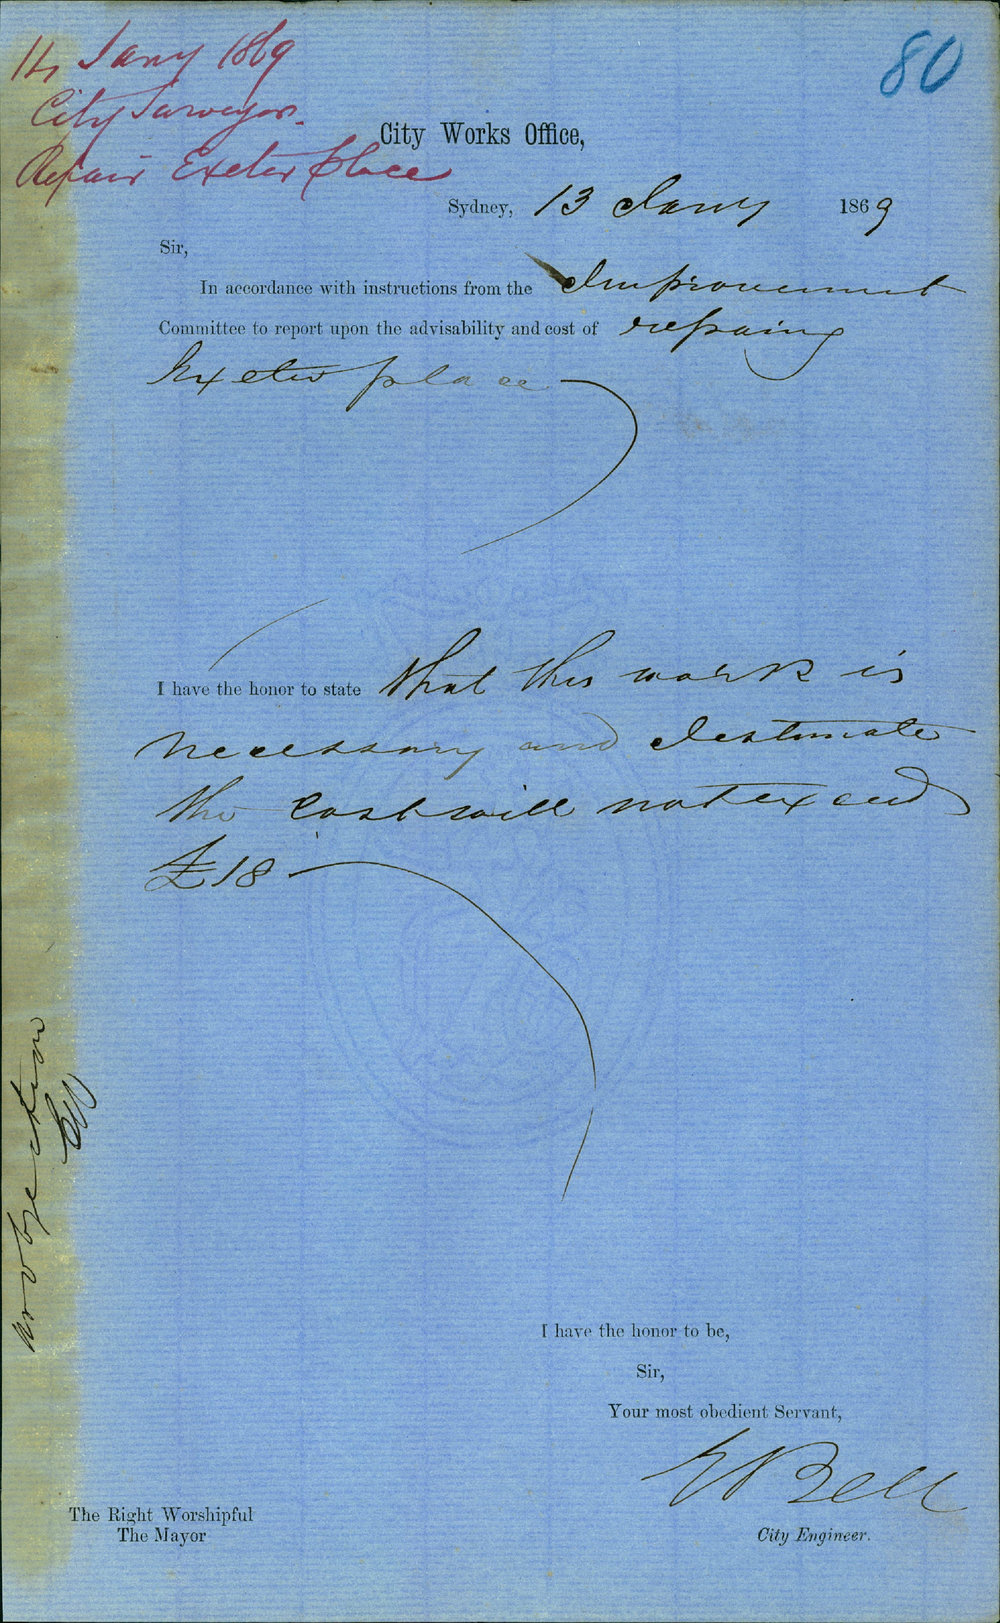 14 Jany 1869
City Surveyor.
Repair Exeter place
80
City Works Office,
Sydney, 13 Jany 1869
Sir,
In accordance with instructions from the Improvement
Committee to report upon the advisability and cost of repairing
Exeter place
I have the honor to state that this work is
necessary and I estimate
the cost will not exceed
£18
no objection
I have the honor to be,
Sir,
Your most obedient Servant,
E Bell
City Engineer.
The Right Worshipful
The Mayor